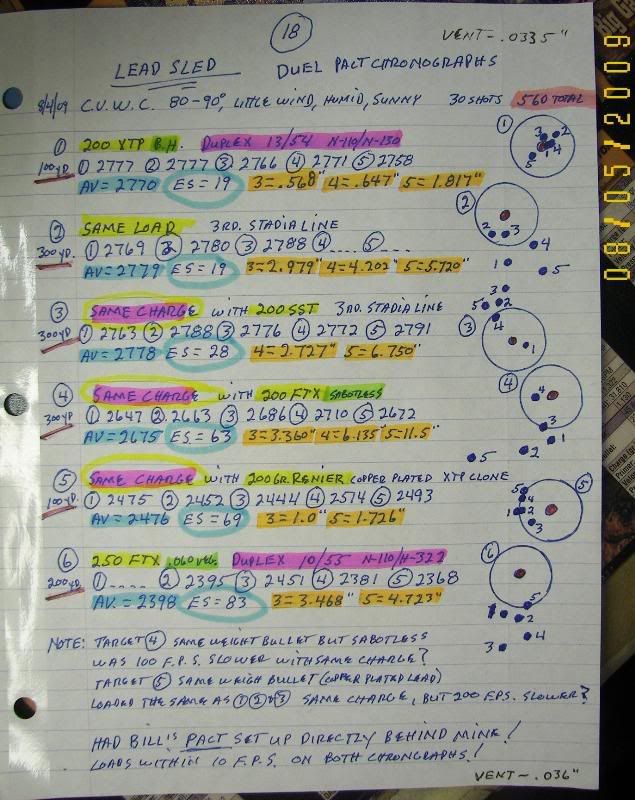 18
VENT ~ .0335"
LEAD SLED DUEL PACT CHRONOGRAPHS
8/4/09 C.V.W.C. 80-90°, LITTLE WIND, HUMID, SUNNY 30 SHOTS 560 TOTAL
① 200 XTP B.H. DUPLEX 13/54 N-110/N-130
100 YD ① 2777 ② 2777 ③ 2766 ④ 2771 ⑤ 2758
AV = 2770 ES = 19 3=.568" 4=.647" 5=1.817"
② SAME LOAD 3RD. STADIA LINE
300 YD. ① 2769 ② 2780 ③ 2788 ④ .... ⑤ ....
AV = 2779 ES = 19 3=2.979" 4=4.202" 5=5.720"
③ SAME CHARGE WITH 200 SST 3RD. STADIA LINE
300 YD ① 2763 ② 2788 ③ 2776 ④ 2772 ⑤ 2791
AV = 2778 ES = 28 4=2.727" 5=6.750"
④ SAME CHARGE WITH 200 FTX SABOTLESS
300 YD ① 2647 ② 2663 ③ 2686 ④ 2710 ⑤ 2672
AV = 2675 ES = 63 3=3.360" 4=6.135" 5=11.5"
⑤ SAME CHARGE WITH 200 GR. RENIER COPPER PLATED XTP CLONE
100 YD. ① 2475 ② 2452 ③ 2444 ④ 2574 ⑤ 2493
AV = 2476 ES = 69 3=1.0" 5=1.726"
⑥ 250 FTX .060 VEG. DUPLEX 10/55 N-110/H-322
200 YD. ① .... ② 2395 ③ 2451 ④ 2381 ⑤ 2368
AV. = 2398 ES = 83 3=3.468" 5=4.723"
NOTE: TARGET ④ SAME WEIGHT BULLET BUT SABOTLESS
WAS 100 F.P.S. SLOWER WITH SAME CHARGE?
TARGET ⑤ SAME WEIGH BULLET (COPPER PLATED LEAD)
LOADED THE SAME AS ① ② & ③ SAME CHARGE, BUT 200 F.P.S. SLOWER?
HAD BILL'S PACT SET UP DIRECTLY BEHIND MINE!
LOADS WITHIN 10 F.P.S. ON BOTH CHRONOGRAPHS!
VENT ~ .036"
① 3 2 4 1 5
② 2 3 4 1 5
③ 3 5 2 4 1
④ 4 3 1 2 5
⑤ 5 4 1 2 3
⑥ 5 1 2 4 3
08/05/2009